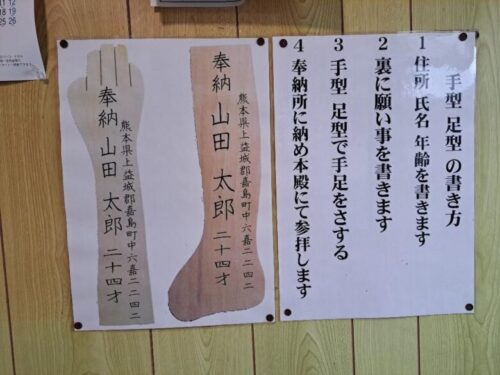 手型 足型 の書き方
1 住所 氏名 年齢を書きます
2 裏に願い事を書きます
3 手型 足型で手足をさする
4 奉納所に納め本殿にて参拝します
熊本県上益城郡嘉島町中六嘉二二四二
奉納 山田 太郎 二十四才
熊本県上益城郡嘉島町中六嘉二二四二
奉納 山田 太郎 二十四才
11 12
18 19
25 26